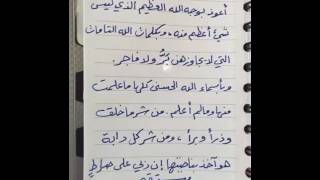 أعوذ بوجه الله العظيم الذي ليس
شيئ أعظم منه، وبكلمات الله التامات
التي لا يجاوزهن بَرٌّ ولا فاجر.
وبأسماء الله الحسنى كلها ما علمت
منها ومالم أعلم. من شر ما خلق
وذرأ وبرأ، ومن شر كل دابة
هو آخذ بناصيتها إن ربي على صراطٍ
مستقيم